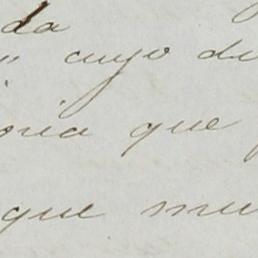 da
" cuyo di
oria que
que mu